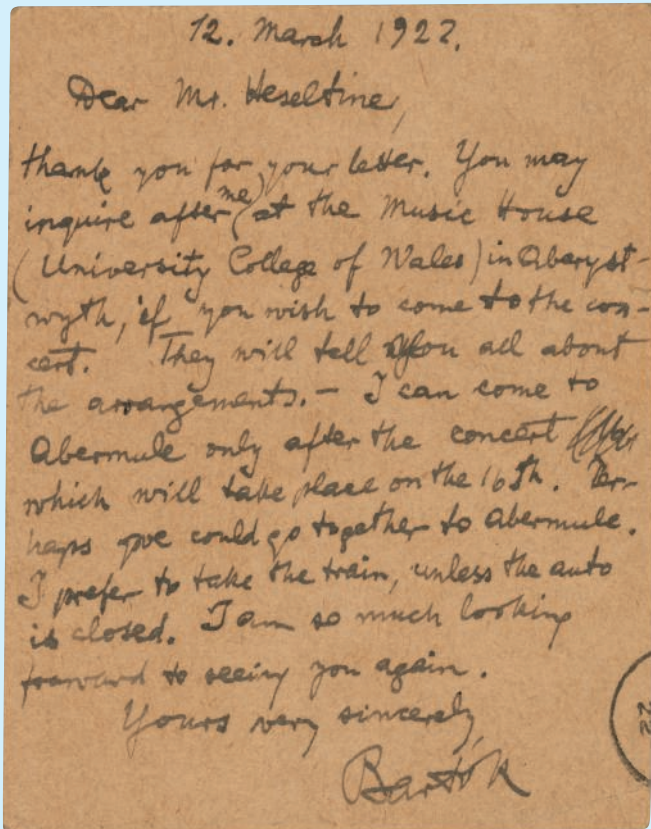 12. March 1922.
Dear Mr. Heseltine,
thank you for your letter. You may
inquire after me at the Music House
(University College of Wales) in Aberyst-
wyth, if you wish to come to the con-
cert. They will tell you all about
the arrangements. – I can come to
Abermule only after the concert
which will take place on the 16th. Per-
haps we could go together to Abermule.
I prefer to take the train, unless the auto
is closed. I am so much looking
forward to seeing you again.
Yours very sincerely,
Bartók
22